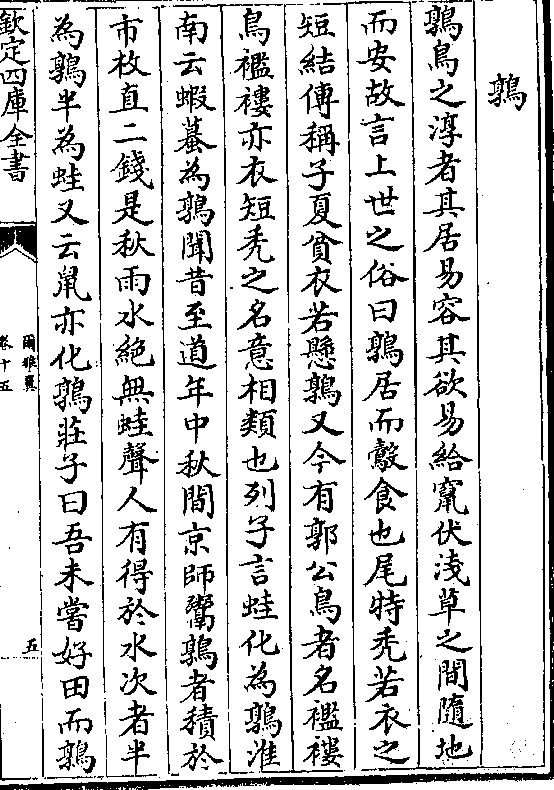 鶉
鶉鳥之淳者其居易容其欲易給竄伏淺草之間隨地
而安故言上世之俗曰鶉居而鷇食也尾特禿若衣之
短結傳稱子夏貧衣若懸鶉又今有郭公鳥者名襤褸
鳥襤褸亦衣短禿之名意相類也列子言蛙化為鶉淮
南云蝦蟇為鶉聞昔至道年中秋間京師鬻鶉者積於
市枚直二錢是秋雨水絶無蛙聲人有得於水次者半
為鶉半為蛙又云䑕亦化鶉莊子曰吾未嘗好田而鶉
欽定四庫全書
爾雅翼
卷十五
五